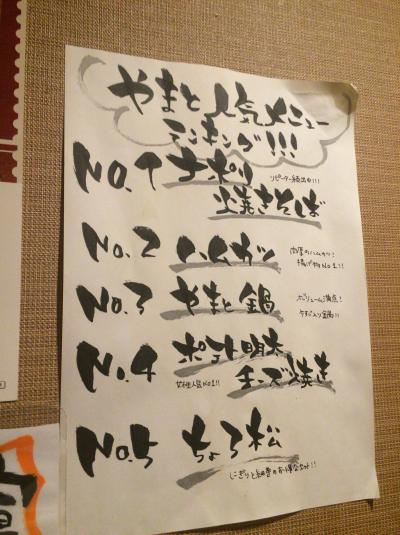 やまと 人気メニュー
ランキング!!!
No.1 ナポリ
リピーター続出中!!!
焼きそば
No.2 ハムカツ
肉厚のハムカツ!
揚げ物No.1!!
No.3 やまと鍋
ボリューム満点!
No.4 ポテト明太
チーズ焼き
女性人気No.1!!
No.5 ちょろ松
にぎりと細巻のお得なセット!!